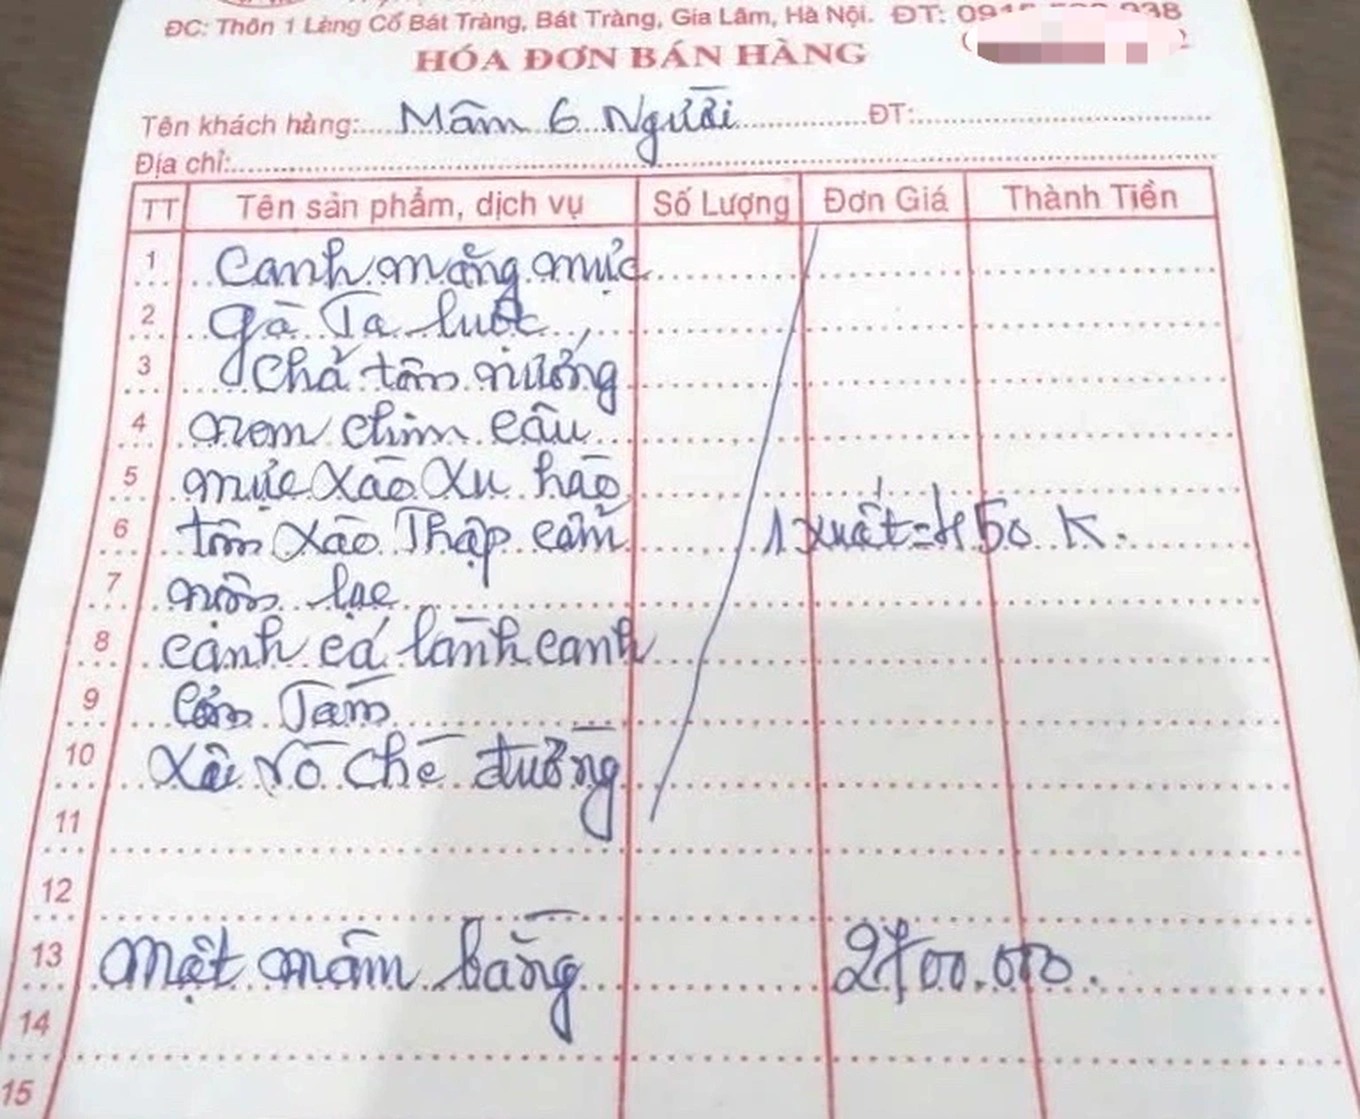 ĐC: Thôn 1 Làng Cổ Bát Tràng, Bát Tràng, Gia Lâm, Hà Nội. ĐT:
HÓA ĐƠN BÁN HÀNG
Tên khách hàng: Mâm 6 Người ĐT:
Địa chỉ:
TT Tên sản phẩm, dịch vụ Số Lượng Đơn Giá Thành Tiền
1 Canh măng mực
2 gà Ta luộc
3 Chả tôm nướng
4 nem chim câu
5 mực xào xu hào
6 tôm xào Thập cẩm 1 xuất = 450 K.
7 nộm lạc
8 canh cá lành canh
9 Cơm Tám
10 Xôi vò chè đường
11
12
13 một mâm bằng 2700.000.
14
15